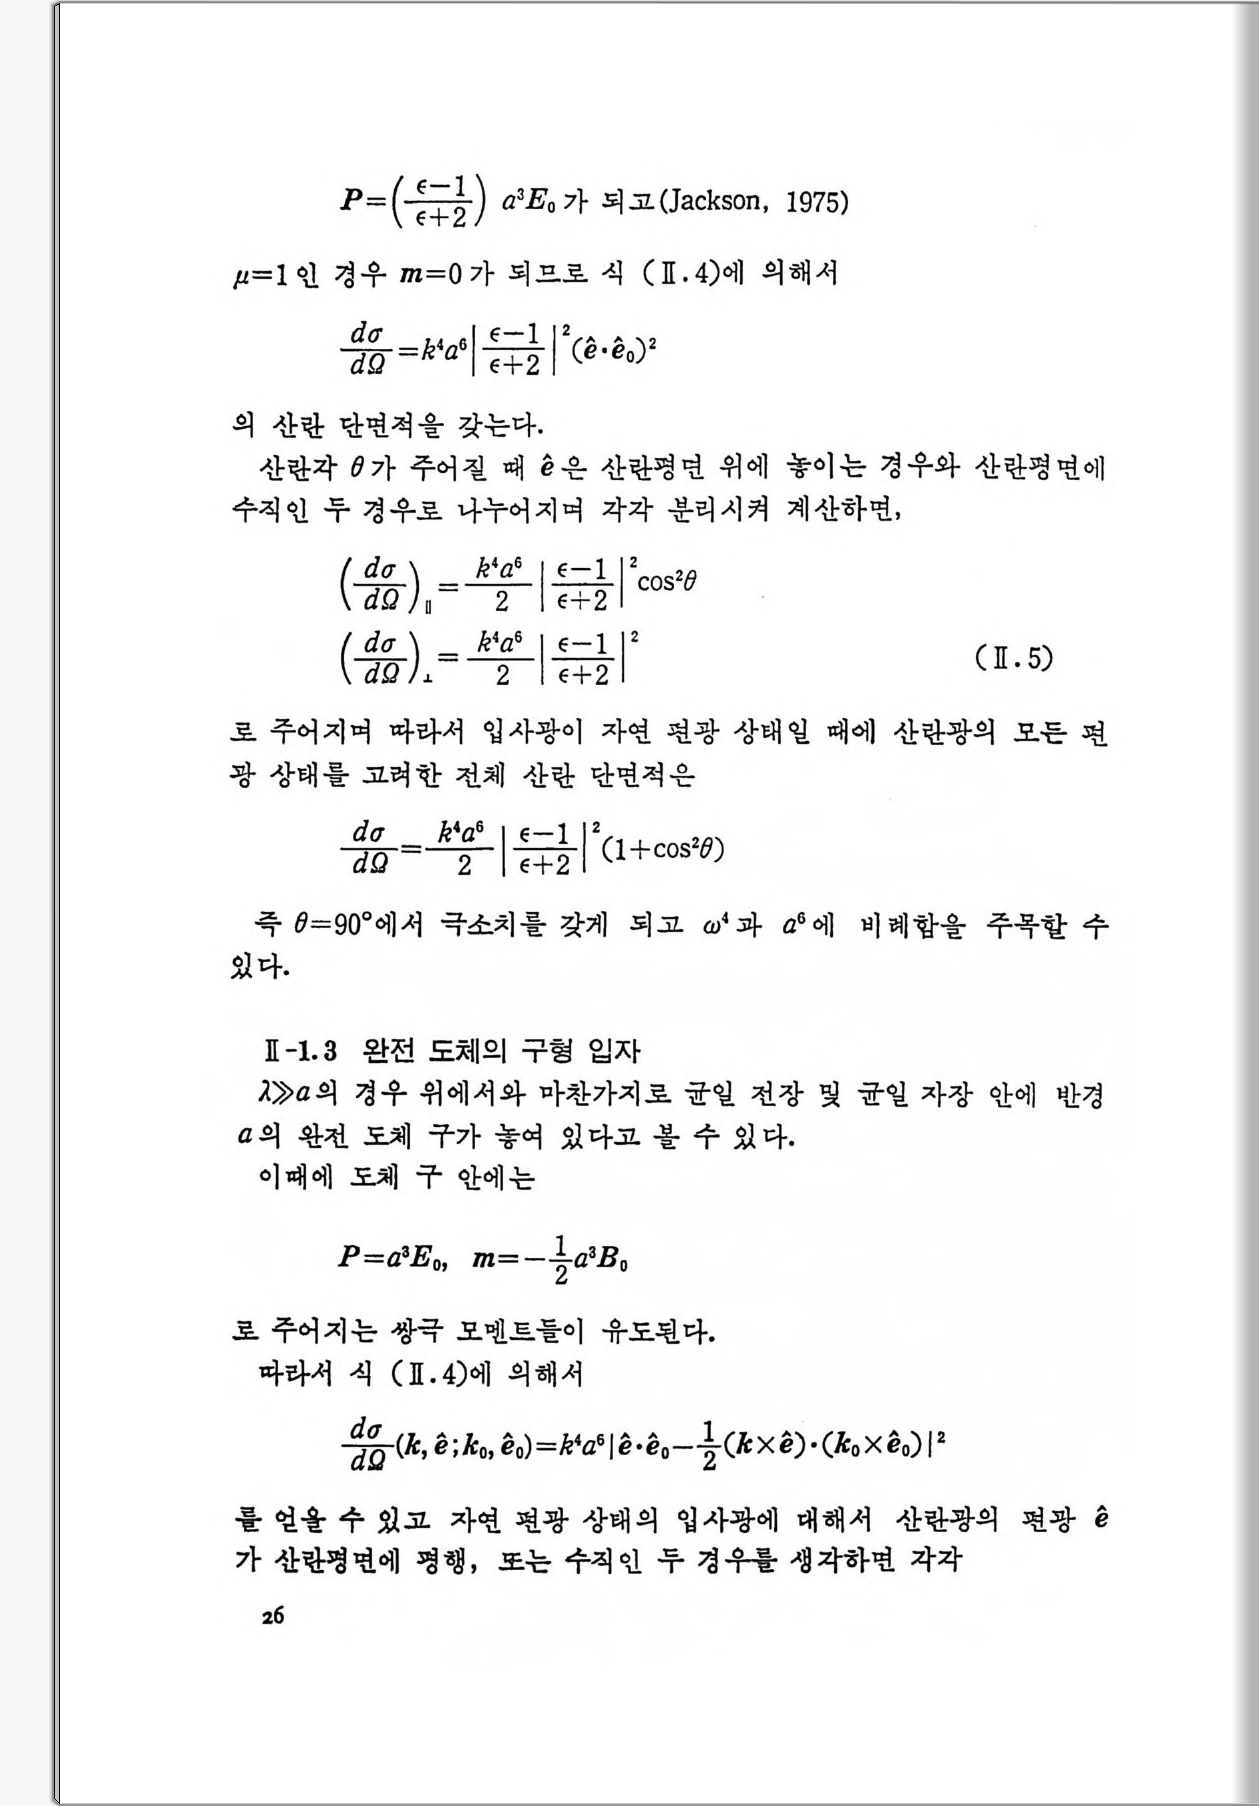 P=(ϵ−1/ϵ+2) a³E₀가 되고(Jackson, 1975)
μ=1인 경우 m=0가 되므로 식 (Ⅱ.4)에 의해서
dσ/dΩ=k⁴a⁶|ϵ−1/ϵ+2|²(ê·ê₀)²
의 산란 단면적을 갖는다.
산란각 θ가 주어질 때 ê은 산란평면 위에 놓이는 경우와 산란평면에
수직인 두 경우로 나누어지며 각각 분리시켜 계산하면,
(dσ/dΩ)∥=k⁴a⁶/2|ϵ−1/ϵ+2|²cos²θ
(dσ/dΩ)⊥=k⁴a⁶/2|ϵ−1/ϵ+2|² (Ⅱ.5)
로 주어지며 따라서 입사광이 자연 편광 상태일 때에 산란광의 모든 편
광 상태를 고려한 전체 산란 단면적은
dσ/dΩ=k⁴a⁶/2|ϵ−1/ϵ+2|²(1+cos²θ)
즉 θ=90°에서 극소치를 갖게 되고 ω⁴과 a⁶에 비례함을 주목할 수
있다.
Ⅱ-1.3 완전 도체의 구형 입자
λ≫a의 경우 위에서와 마찬가지로 균일 전장 및 균일 자장 안에 반경
a의 완전 도체 구가 놓여 있다고 볼 수 있다.
이때에 도체 구 안에는
P=a³E₀, m=−1/2a³B₀
로 주어지는 쌍극 모멘트들이 유도된다.
따라서 식 (Ⅱ.4)에 의해서
dσ/dΩ(k, ê;k₀, ê₀)=k⁴a⁶|ê·ê₀−1/2(k×ê)·(k₀×ê₀)|²
를 얻을 수 있고 자연 편광 상태의 입사광에 대해서 산란광의 편광 ê
가 산란평면에 평행, 또는 수직인 두 경우를 생각하면 각각
26